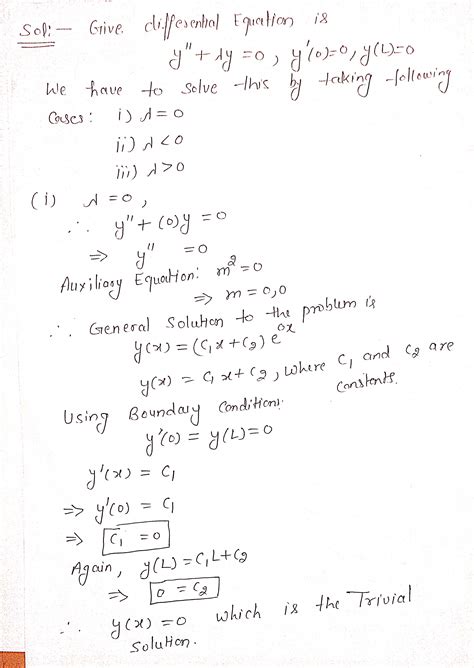 Sol:- Give differential Equation is
y'' + λy = 0, y'(0)=0, y(L)=0
We have to solve this by taking following
Cases: i) λ = 0
ii) λ < 0
iii) λ > 0
(i) λ = 0,
∴ y'' + (0)y = 0
⇒ y'' = 0
Auxiliary Equation: m² = 0
⇒ m = 0,0
∴ General Solution to the problem is
y(x) = (C₁x + C₂) e^{0x}
y(x) = C₁x + C₂, where C₁ and C₂ are
constants.
Using Boundary Conditions:
y'(0) = y(L) = 0
y'(x) = C₁
⇒ y'(0) = C₁
⇒ C₁ = 0
Again, y(L) = C₁L + C₂
⇒ 0 = C₂
∴ y(x) = 0 which is the Trivial
Solution.